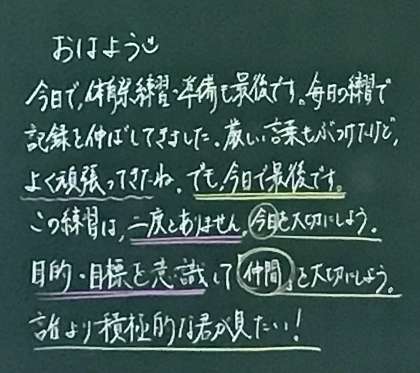 おはよう
今日で、体育祭練習・準備も最後です。毎日の練習で
記録を伸ばしてきました。厳しい言葉もぶつけたけど、
よく頑張ってきたね。でも、今日で最後です。
この練習は、二度とありません。今日を大切にしよう。
目的・目標を意識して「仲間」を大切にしよう。
誰より積極的な君が見たい！